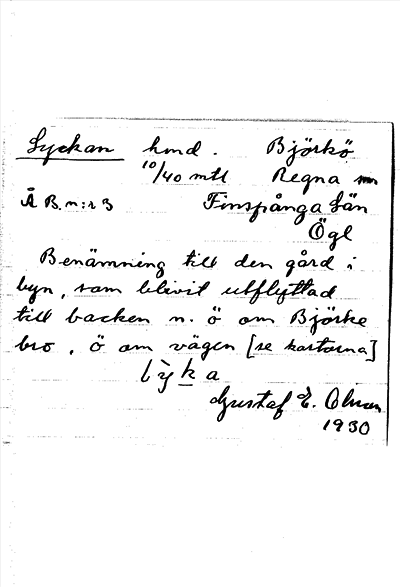 Lyckan hmd. Björkö
10/40 mtl Regna sn
Å B. n:r 3 Finspånga län
Ögl
Benämning till den gård i
byn, som blivit utflyttad
till backen n. ö om Björke
bro, ö om vägen [se kartorna]
lỳka
Gustaf E. Olson
1930